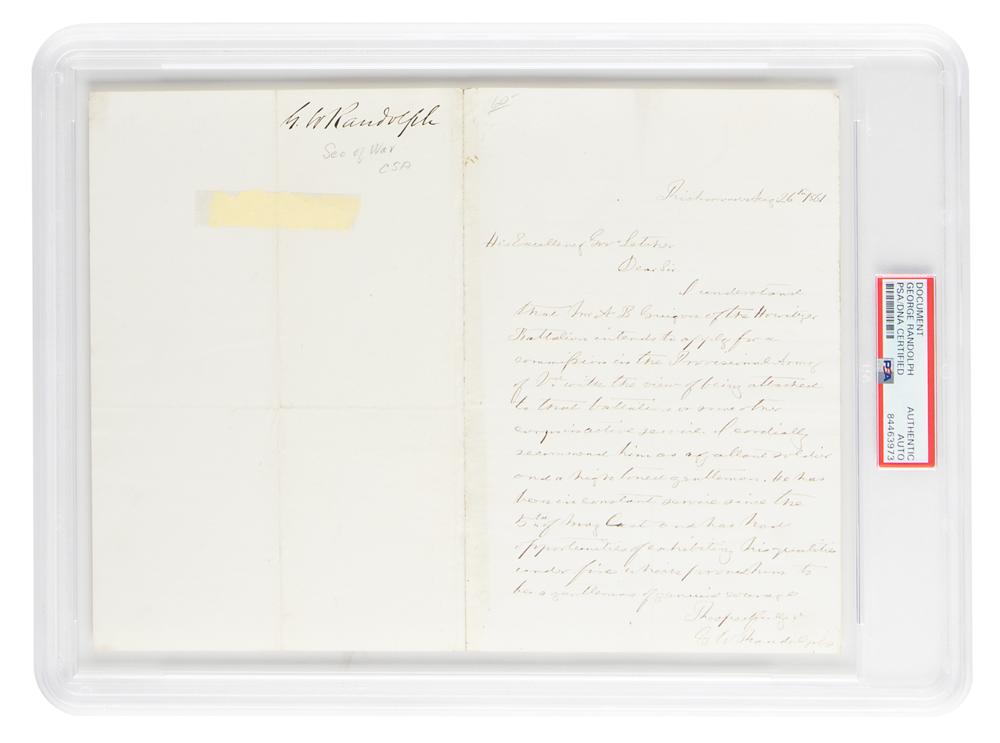 G. W Randolph
Sec of War
CSA
Richmond Aug 26th 1861
His Excellency Gov Letcher
Dear Sir
I understand
that Mr A B Guigon of the Howitzer
Battalion intends to apply for a
commission in the Provisional Army
of Va with the view of being attached
to that battalion or some other
corps in active service. I cordially
recommend him as a gallant soldier
and a high toned gentleman. He has
been in constant service since the
5th of May last and has had
opportunities of exhibiting his qualities
under fire which prove him to
be a gentleman of genuine courage
Respectfully
G W Randolph
DOCUMENT
GEORGE RANDOLPH
PSA/DNA CERTIFIED
AUTHENTIC
AUTO
84463973
PSA